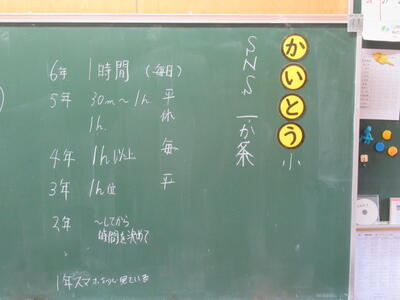 かいとう小
SNS 一か条
6年 1時間 (毎日)
5年 30m〜1h 平
1h. 休
4年 1h以上 毎
3年 1h位 平
2年 〜してから
時間を決めて
1年 スマホ 見ている